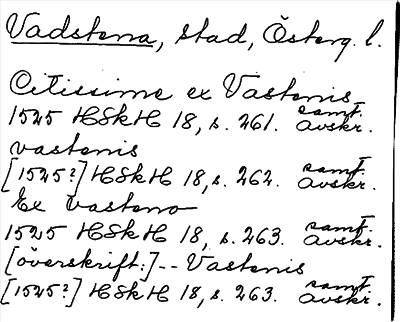 Vadstena, stad, Österg. l.
Citissime ex Vastenis
1525 HSkH 18, s. 261. samt. avskr.
vastenis
[1525?] HSkH 18, s. 262. samt. avskr.
Ex vasteno
1525 HSkH 18, s. 263. samt. avskr.
[överskrift:] -- Vastenis
[1525?] HSkH 18, s. 263. samt. avskr.